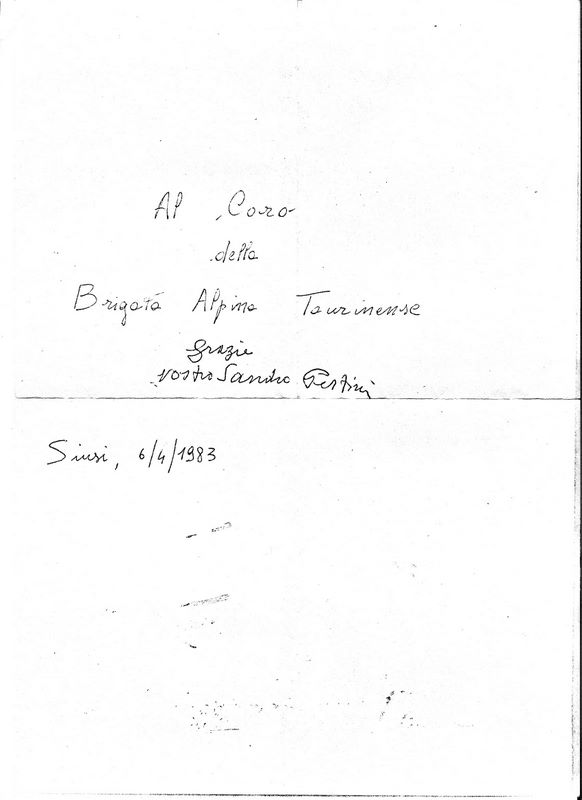 Al Coro
della
Brigata Alpina Taurinense
grazie
vostro Sandro Pertini
Siusi, 6/4/1983